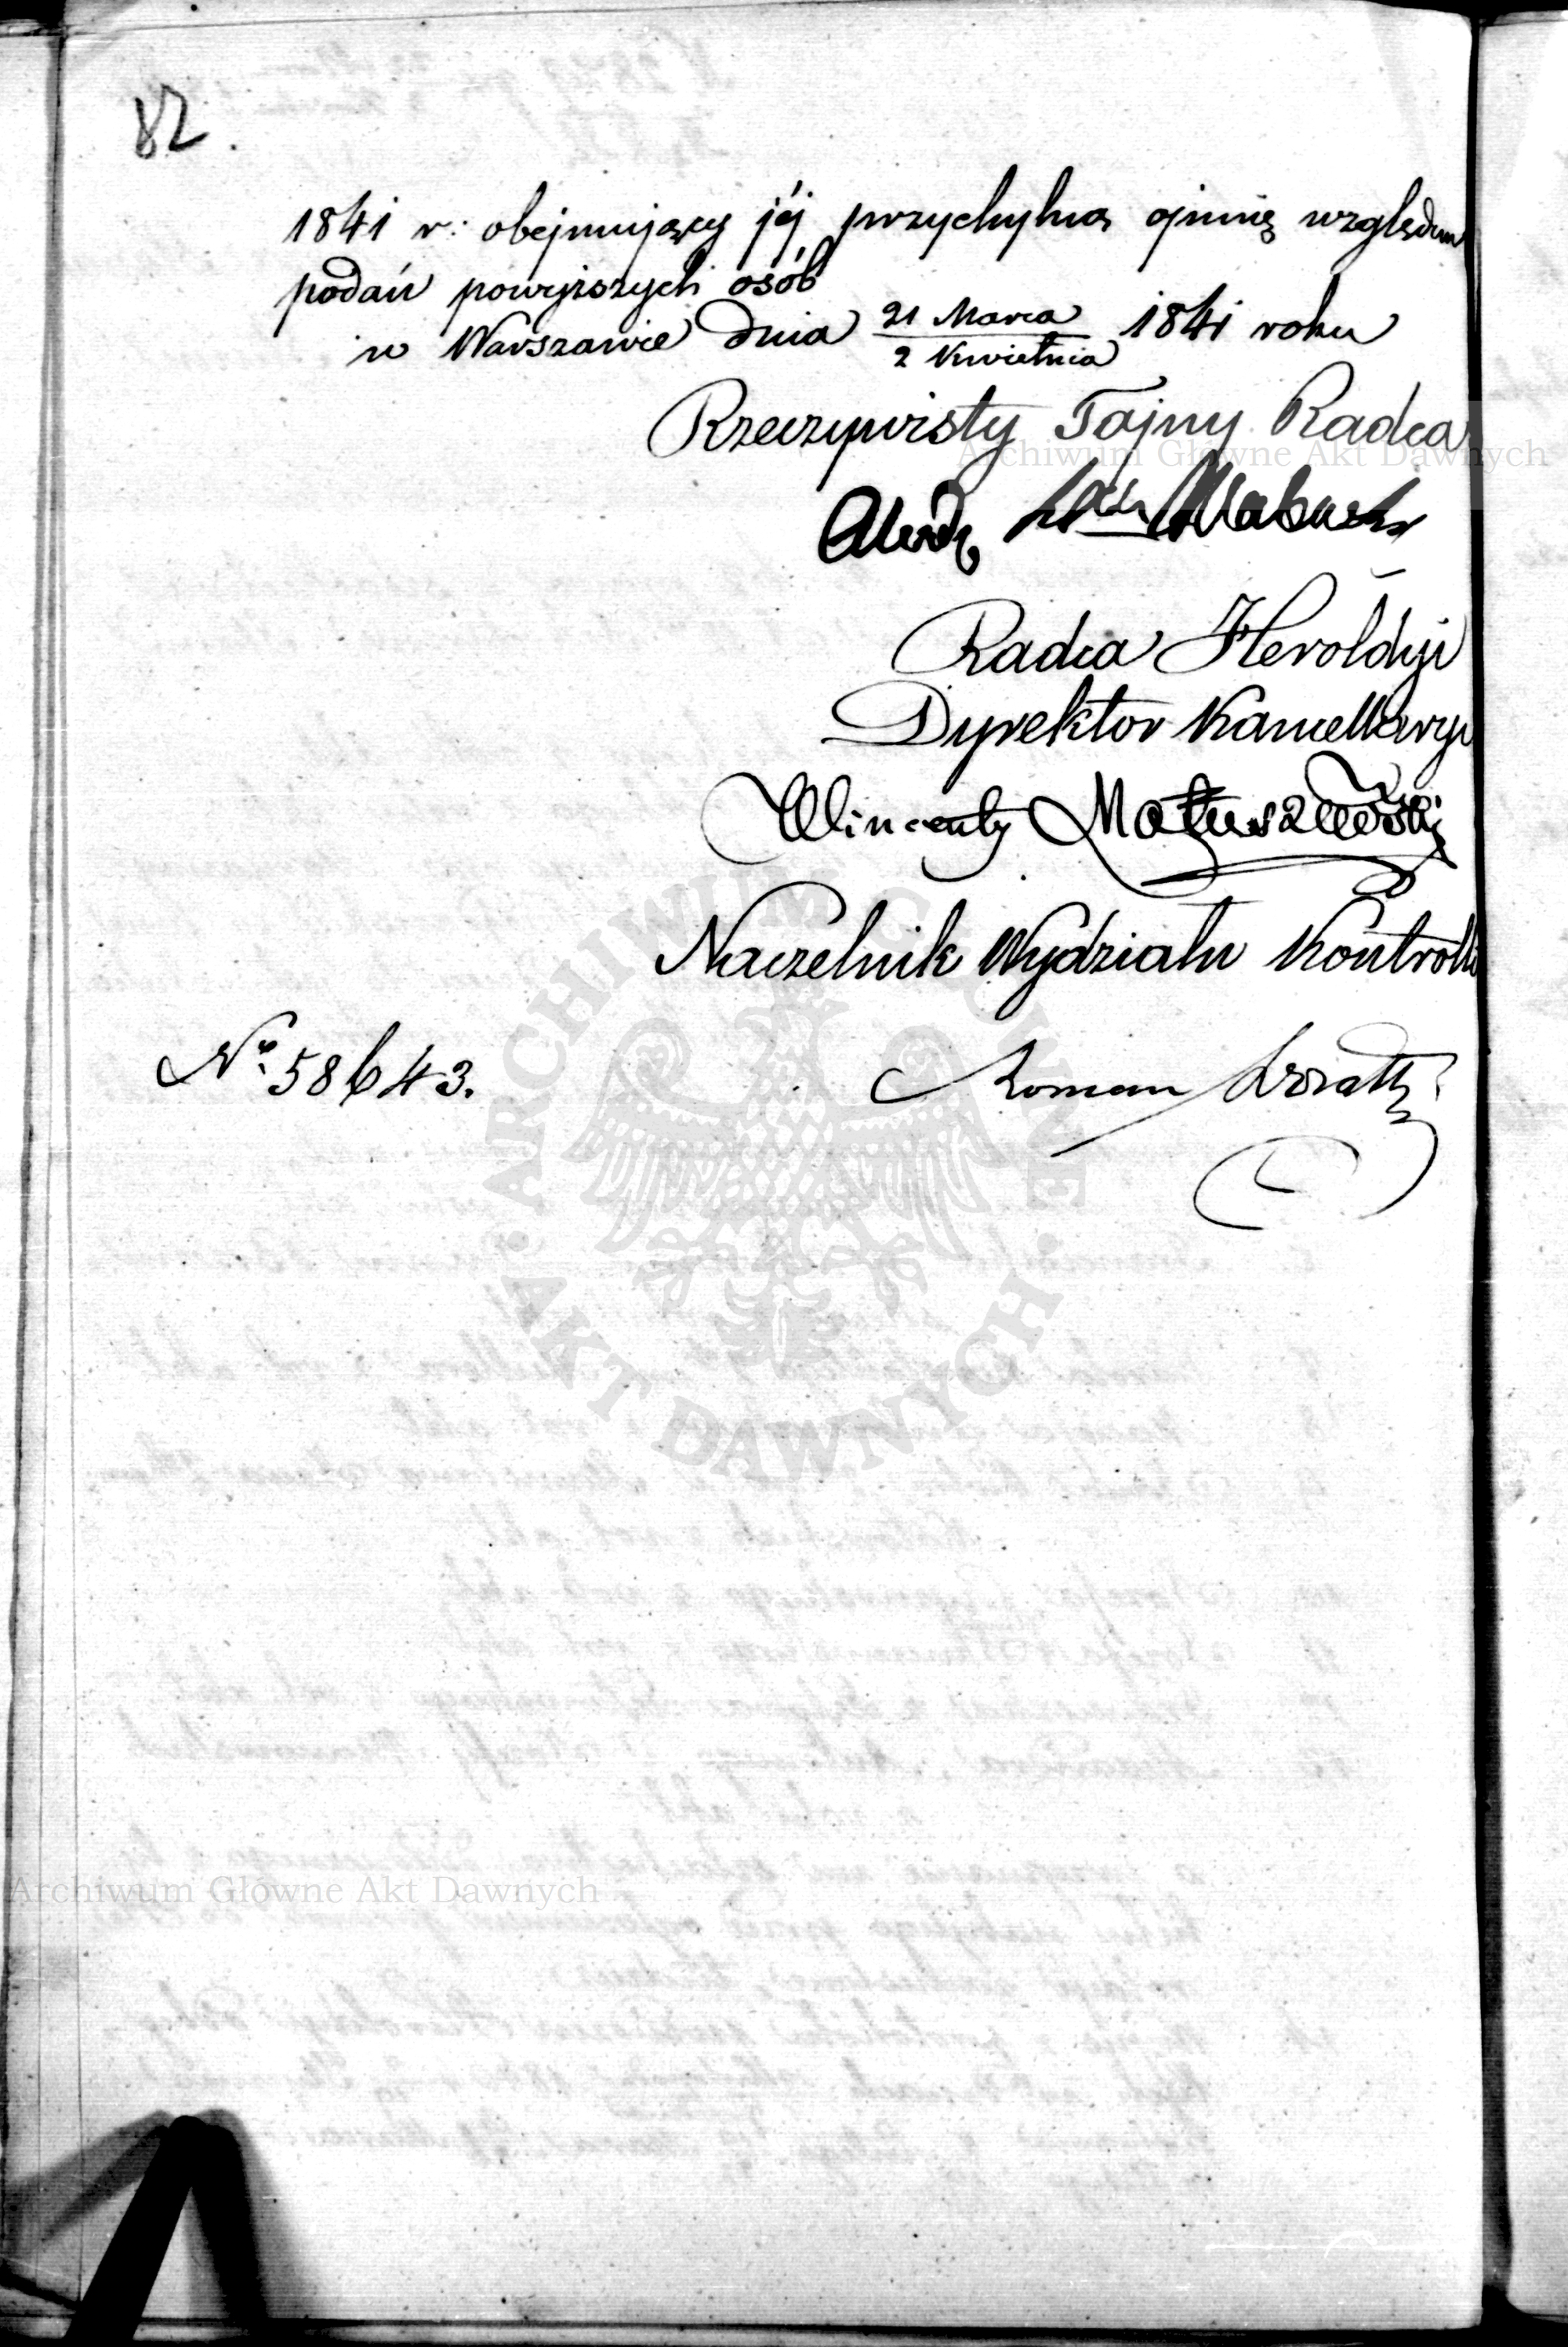 82.
1841 r: obejmujący jéj przychylną opinię względem
podań powyższych osób
w Warszawie dnia 21 Marca / 2 Kwietnia 1841 roku
Rzeczywisty Tajny Radca
Archiwum Główne Akt Dawnych
Radca Heroldyi
Dyrektor Kancellaryi
Wincenty Matuszewski
Naczelnik Wydziału Kontrolli
No. 58643.
Roman
ARCHIWUM GŁÓWNE
AKT DAWNYCH
Archiwum Główne Akt Dawnych